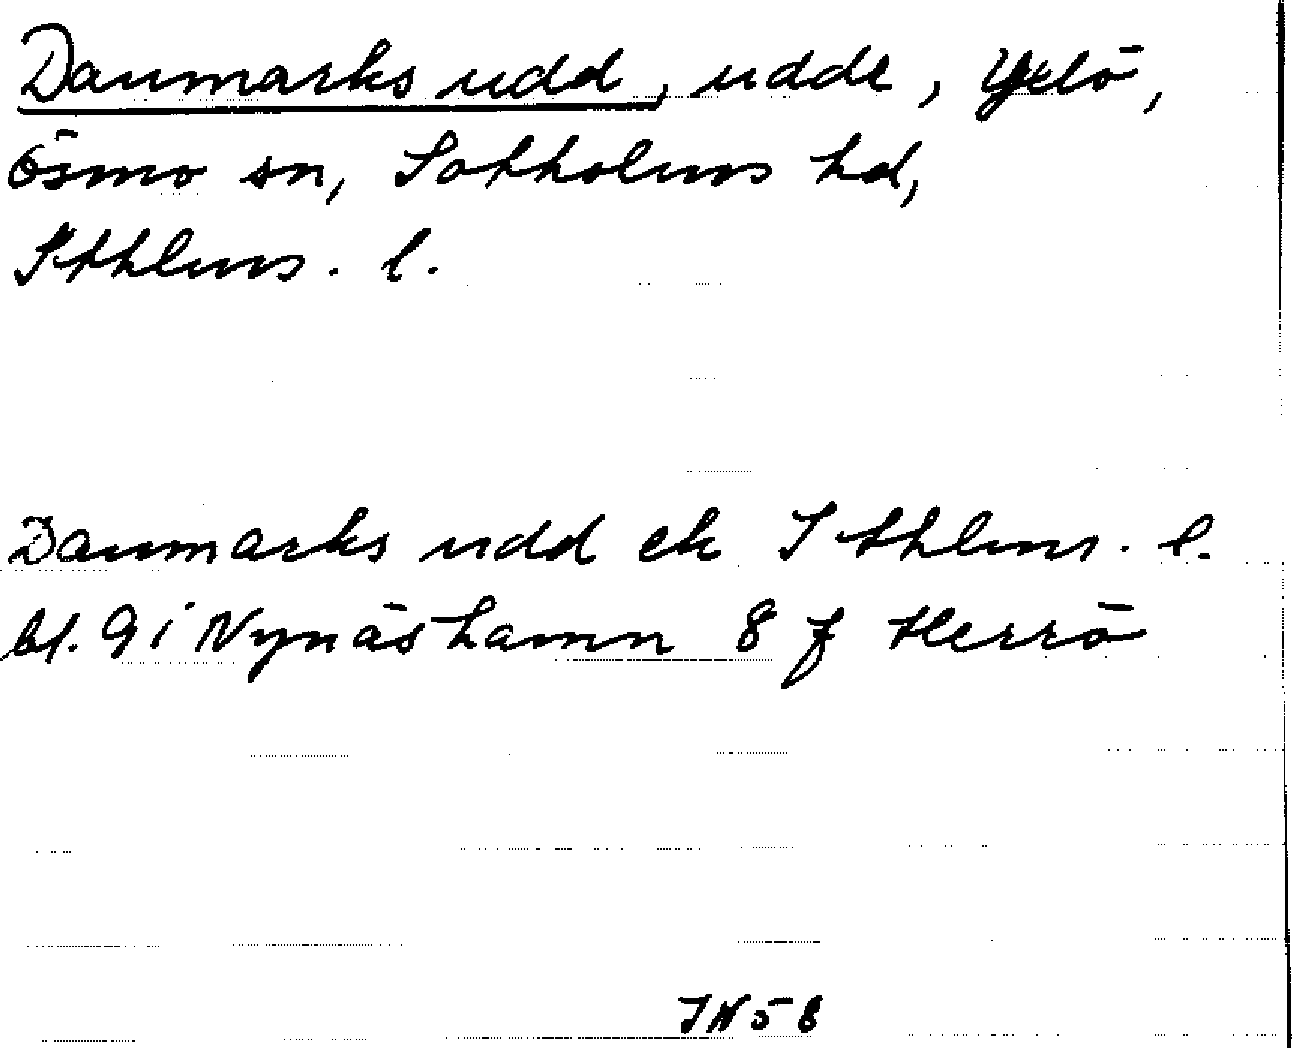 Danmarks udd, udde, Yxlö,
Ösmo sn, Sotholms hd,
Sthlms. l.
Danmarks udd ek Sthlms. l.
bl. 91 Nynäshamn 8 f Herrö
IN 58